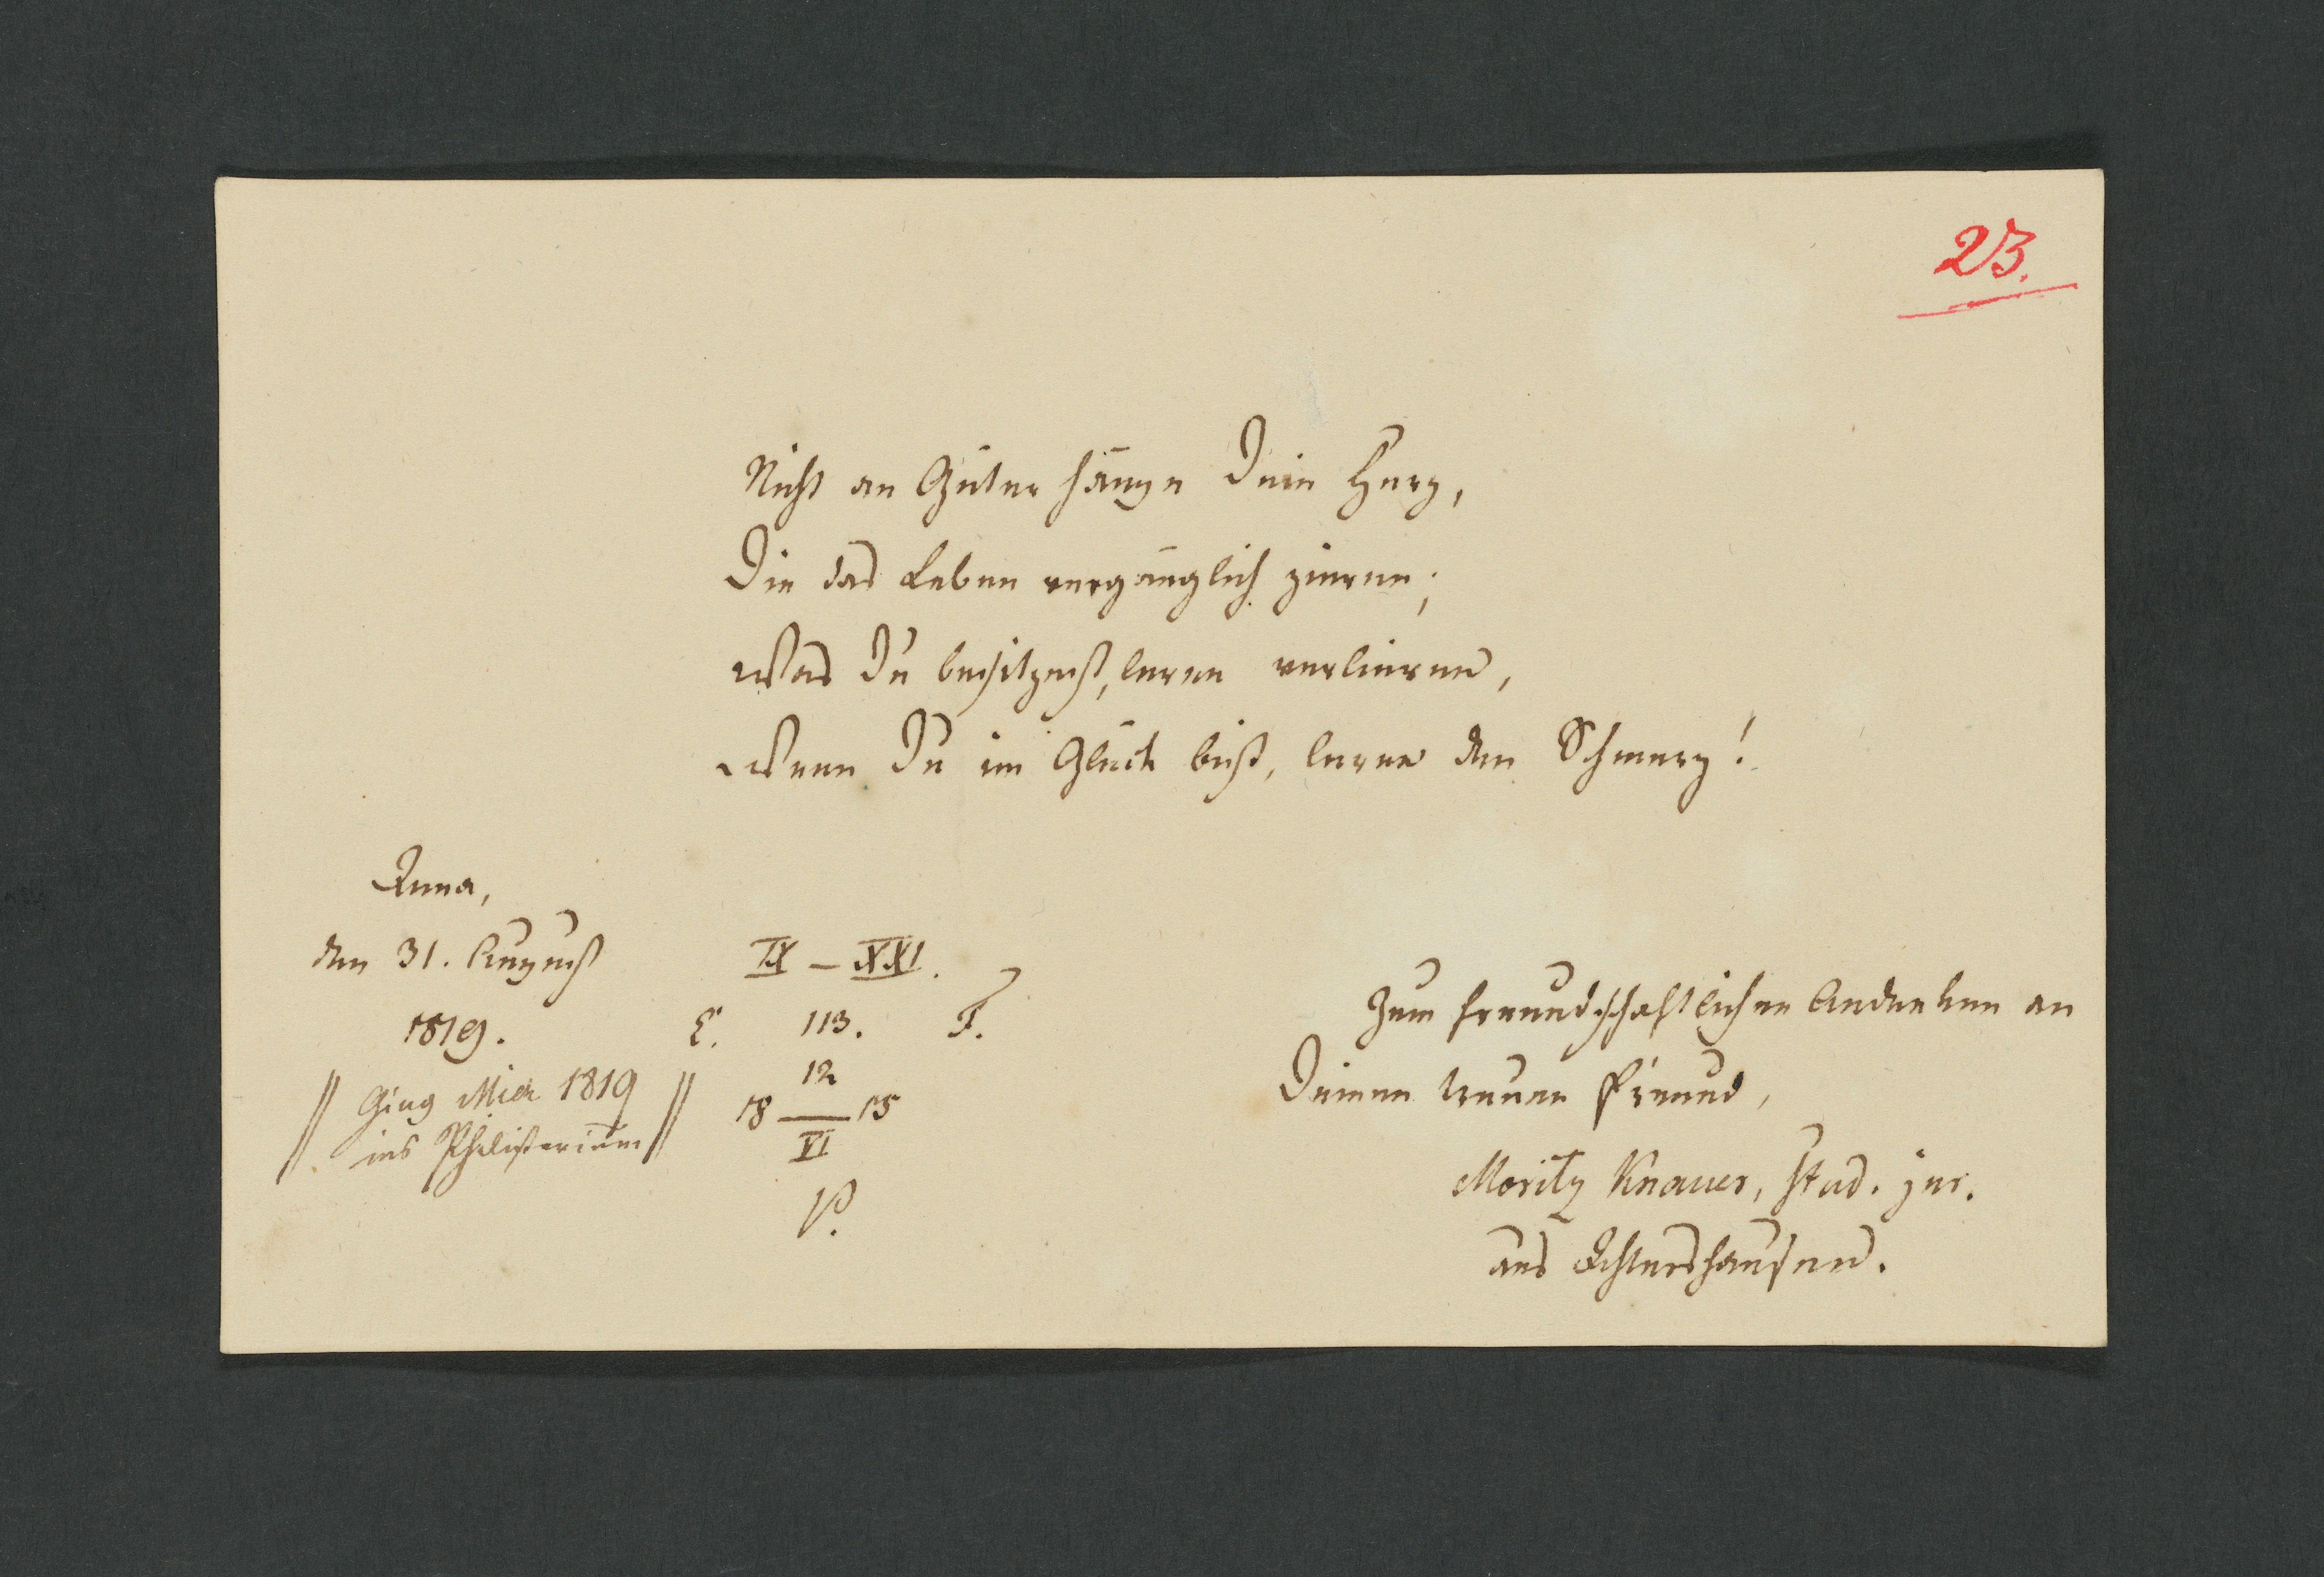 23.
Nicht an Güter hänge Dein Herz,
Die das Leben vergänglich zieren;
Was Du besitzest, lerne verlieren,
Wenn Du im Glück bist, lerne den Schmerz!
Jena,
den 31. August
1819.
// Ging Mich 1819 //
ins Philisterium
IX – XXI.
E. 113. F.
12
18 — 15
VI
V.
Zum freundschaftlichen Andenken an
Deinen treuen Freund,
Moritz Knauer, stud. jur.
aus Ichtershausen.